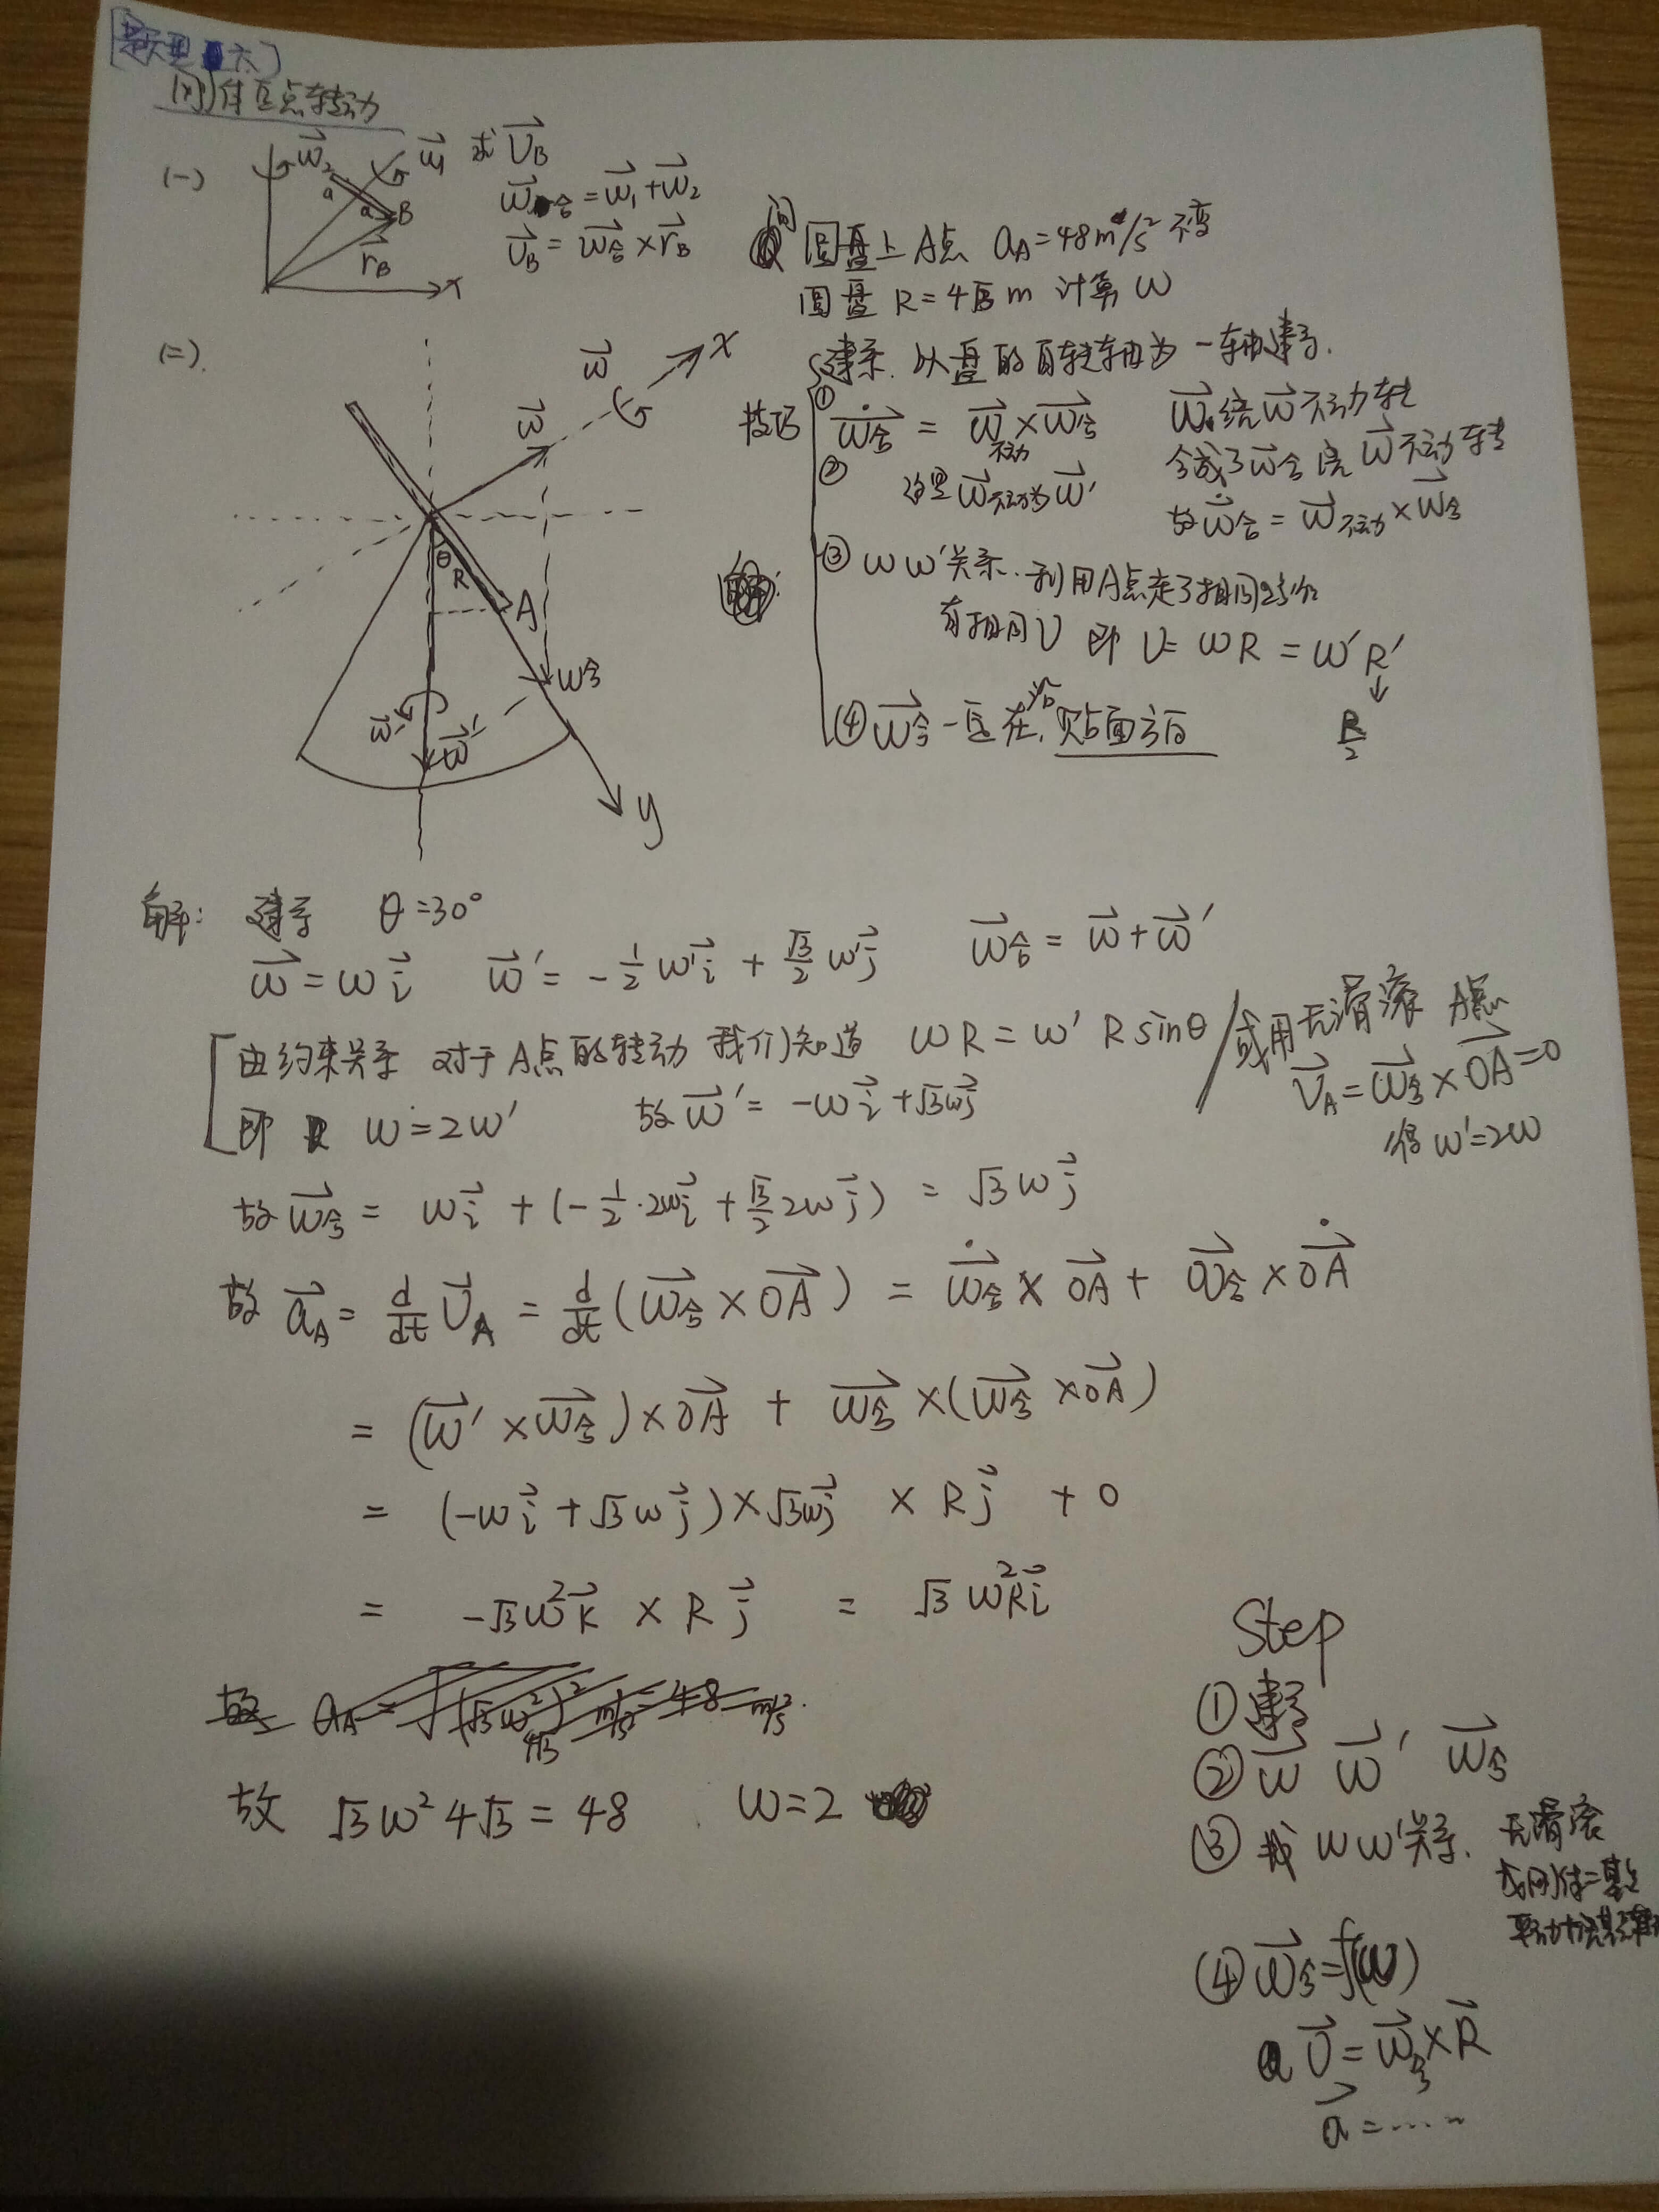 [类型六]
刚体定点转动
(一)
ω⃗₂ ω⃗₁ 求 V⃗B
a a B
r⃗B
x
ω⃗合 = ω⃗₁ + ω⃗₂
V⃗B = ω⃗合 × r⃗B
问 圆盘上A点 aA = 48m/s² 不变
圆盘 R = 4√3 m 计算 ω
(二).
ω⃗ x
ω⃗
θ R A
ω合
ω⃗' ω⃗'
y
建系. 以盘的自转轴为一轴建系.
技巧 ① ω⃗̇合 = ω⃗不动 × ω⃗合
ω⃗绕ω⃗不动转
② 这里ω⃗不动为ω⃗'
合成了ω⃗合 绕 ω⃗不动转
故ω⃗̇合 = ω⃗不动 × ω⃗合
③ ω ω'关系. 利用A点走了相同
有相同V 即 V = ωR = ω'R'
↓
R/2
④ ω⃗合一定在 贴面方向
解: 建系 θ = 30°
ω⃗ = ωi⃗ ω⃗' = -1/2 ω'i⃗ + √3/2 ω'j⃗ ω⃗合 = ω⃗ + ω⃗'
由约束关系 对于A点的转动 我们知道 ωR = ω'R sinθ / 或用无滑滚 A点
V⃗A = ω⃗合 × OA⃗ = 0
即 ω = 2ω' 故 ω⃗' = -ωi⃗ + √3ωj⃗
得 ω' = 2ω
故 ω⃗合 = ωi⃗ + (-1/2·2ωi⃗ + √3/2 2ωj⃗) = √3ωj⃗
故 a⃗A = d/dt V⃗A = d/dt (ω⃗合 × OA⃗) = ω⃗̇合 × OA⃗ + ω⃗合 × OA⃗̇
= (ω⃗' × ω⃗合) × OA⃗ + ω⃗合 × (ω⃗合 × OA⃗)
= (-ωi⃗ + √3ωj⃗) × √3ωj⃗ × Rj⃗ + 0
= -√3ω²k⃗ × Rj⃗ = √3ω²Ri⃗
故 √3ω²4√3 = 48 ω = 2
Step
① 建系
② ω⃗ ω⃗' ω⃗合
③ 找 ωω'关系. 无滑滚
④ ω⃗合 = f(ω)
V⃗ = ω⃗合 × R⃗
a⃗ = ......